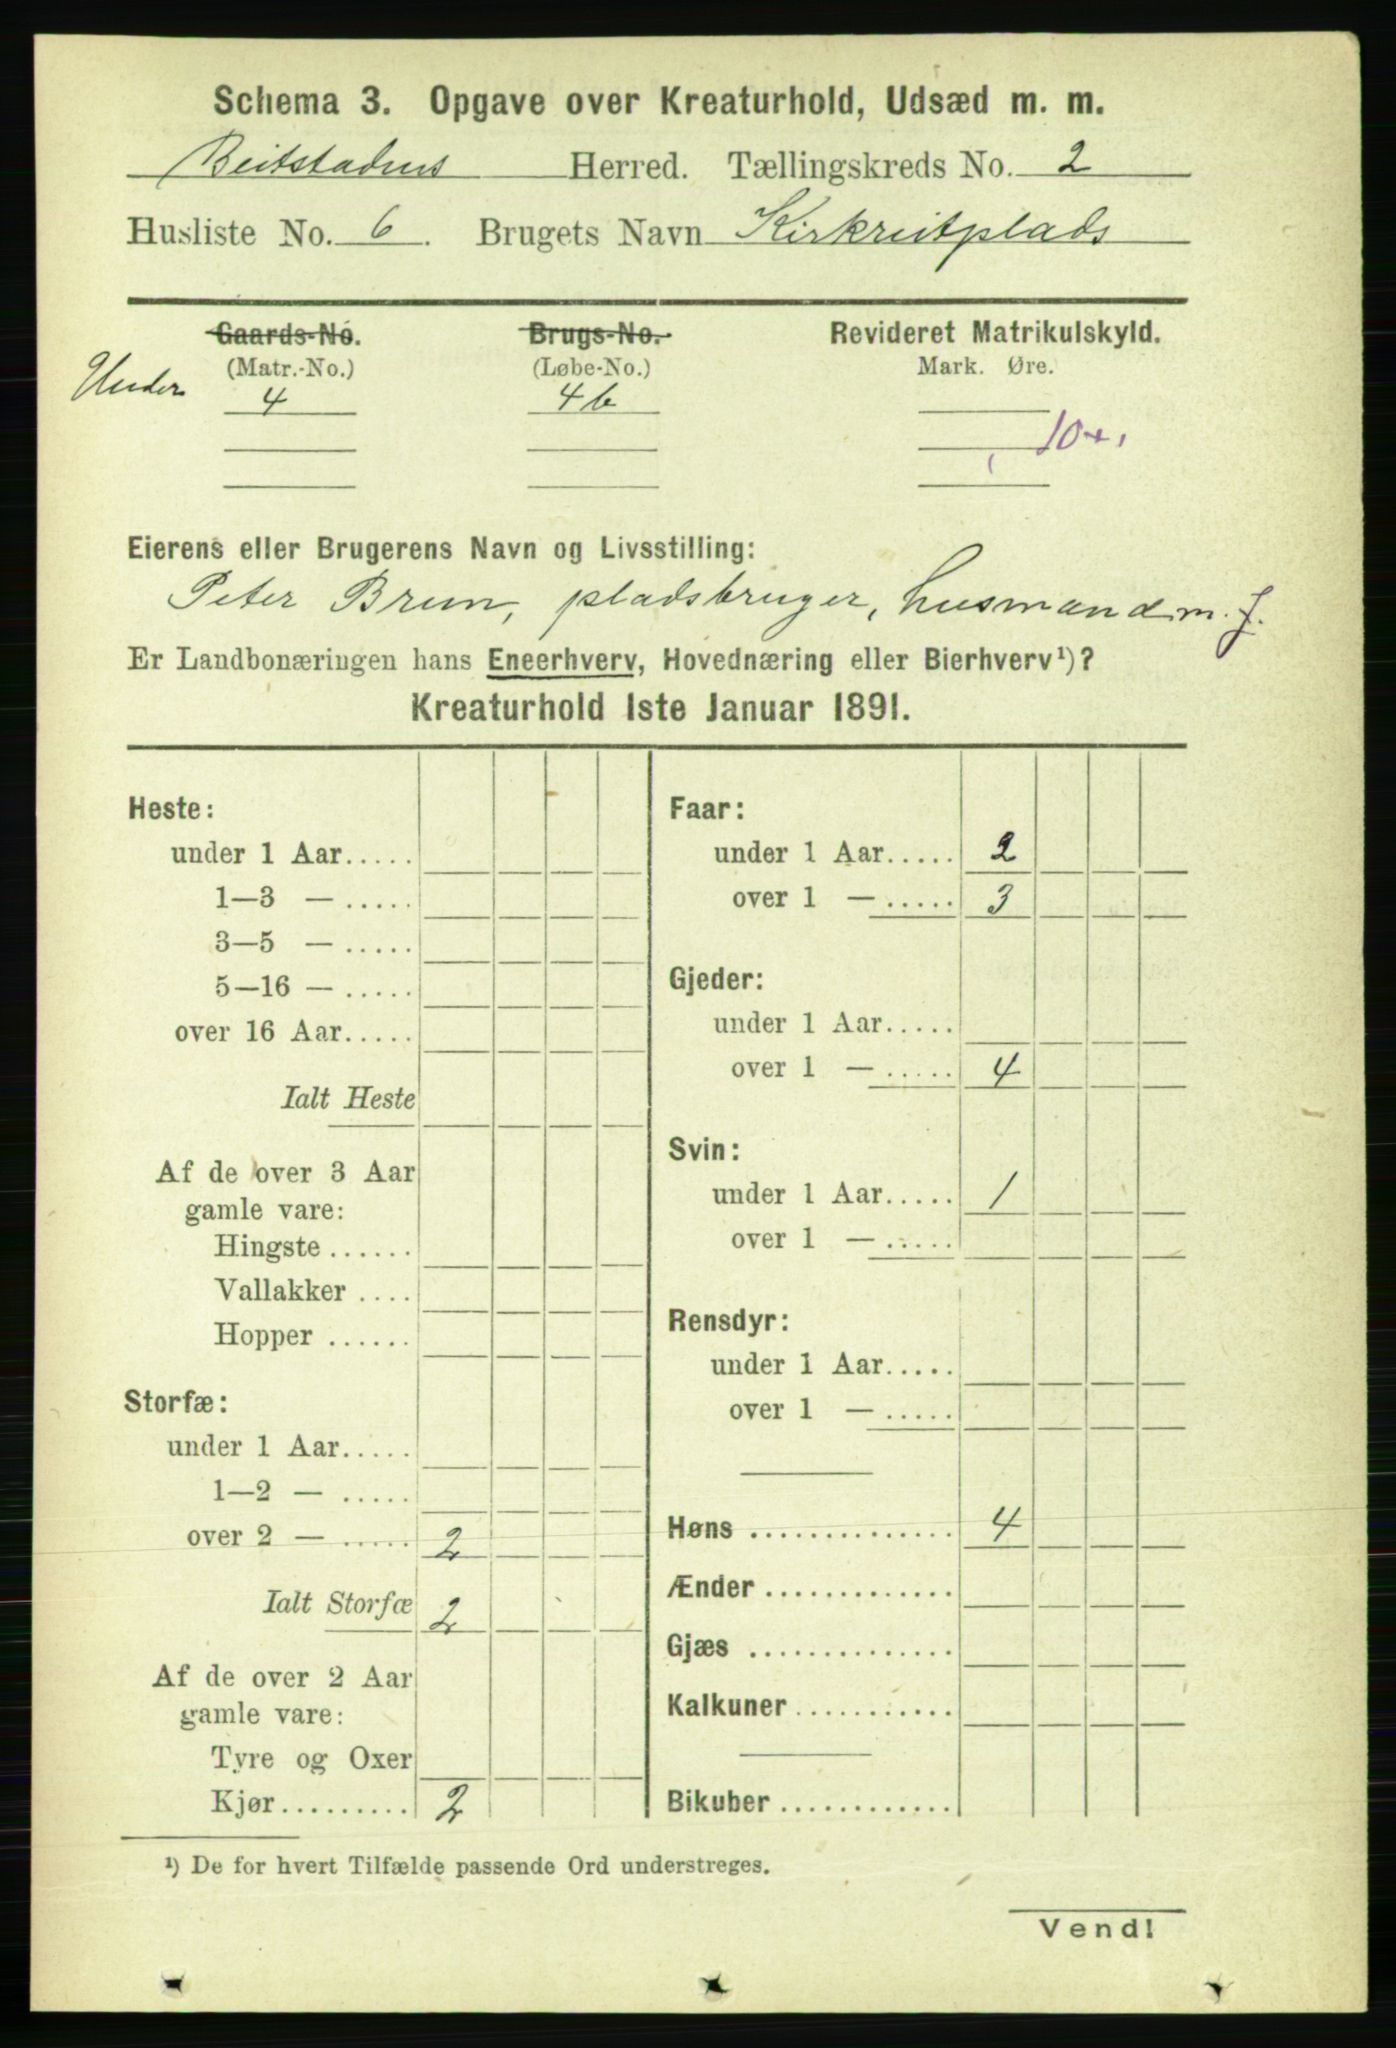 Schema 3. Opgave over Kreaturhold, Udsæd m. m.
Beitstadens Herred. Tællingskreds No. 2
Husliste No. 6. Brugets Navn Kirkreitplads
Gaards-No. Brugs-No. Revideret Matrikulskyld.
Under (Matr.-No.) (Løbe-No.) Mark. Øre.
4 4b
Eierens eller Brugerens Navn og Livsstilling:
Peter Brun, pladsbruger, husmand m. J.
Er Landbonæringen hans Eneerhverv, Hovednæring eller Bierhverv¹)?
Kreaturhold 1ste Januar 1891.
Heste:
under 1 Aar.....
1—3 — .....
3—5 — .....
5—16 — .....
over 16 Aar.....
Ialt Heste
Af de over 3 Aar
gamle vare:
Hingste ......
Vallakker ....
Hopper ......
Storfæ:
under 1 Aar.....
1—2 — .....
over 2 — ..... 2
Ialt Storfæ 2
Af de over 2 Aar
gamle vare:
Tyre og Oxer
Kjør......... 2
Faar:
under 1 Aar..... 2
over 1 — ..... 3
Gjeder:
under 1 Aar.....
over 1 — ..... 4
Svin:
under 1 Aar..... 1
over 1 — .....
Rensdyr:
under 1 Aar.....
over 1 — .....
Høns .............. 4
Ænder .............
Gjæs ..............
Kalkuner ...........
Bikuber ............
¹) De for hvert Tilfælde passende Ord understreges.
Vend!